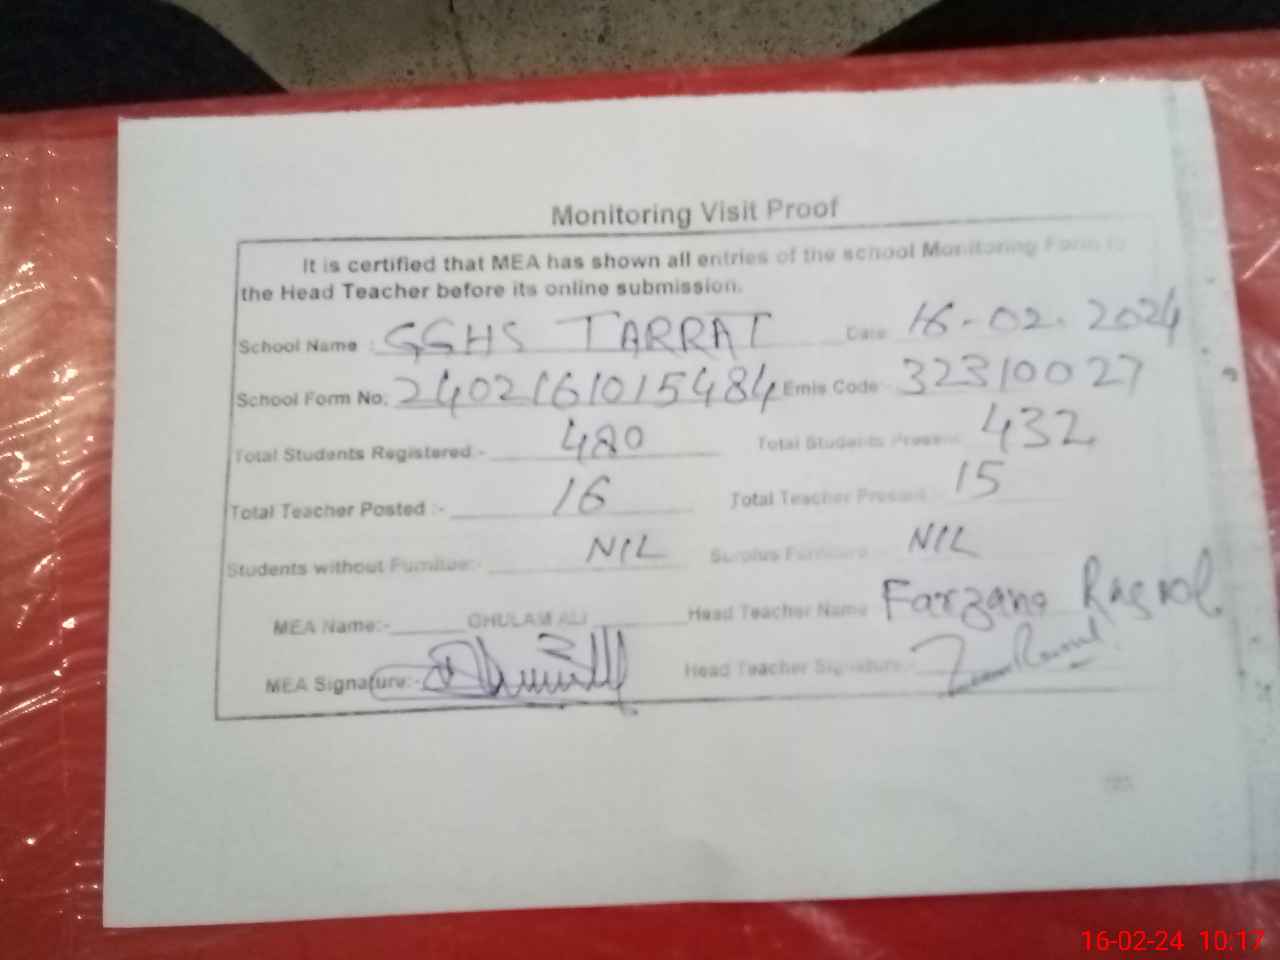 Monitoring Visit Proof
It is certified that MEA has shown all entries of the school Monitoring Form to
the Head Teacher before its online submission.
School Name : GGHS TARRAT Date 16-02-2024
School Form No: 2402161015484 Emis Code 32310027
Total Students Registered:- 480 Total Students Present 432
Total Teacher Posted :- 16 Total Teacher Present 15
Students without Furnitue:- NIL Surplus Furniture NIL
MEA Name:- GHULAM ALI Head Teacher Name Farzana Rasool
MEA Signature:- Head Teacher Signature:-
16-02-24 10:17